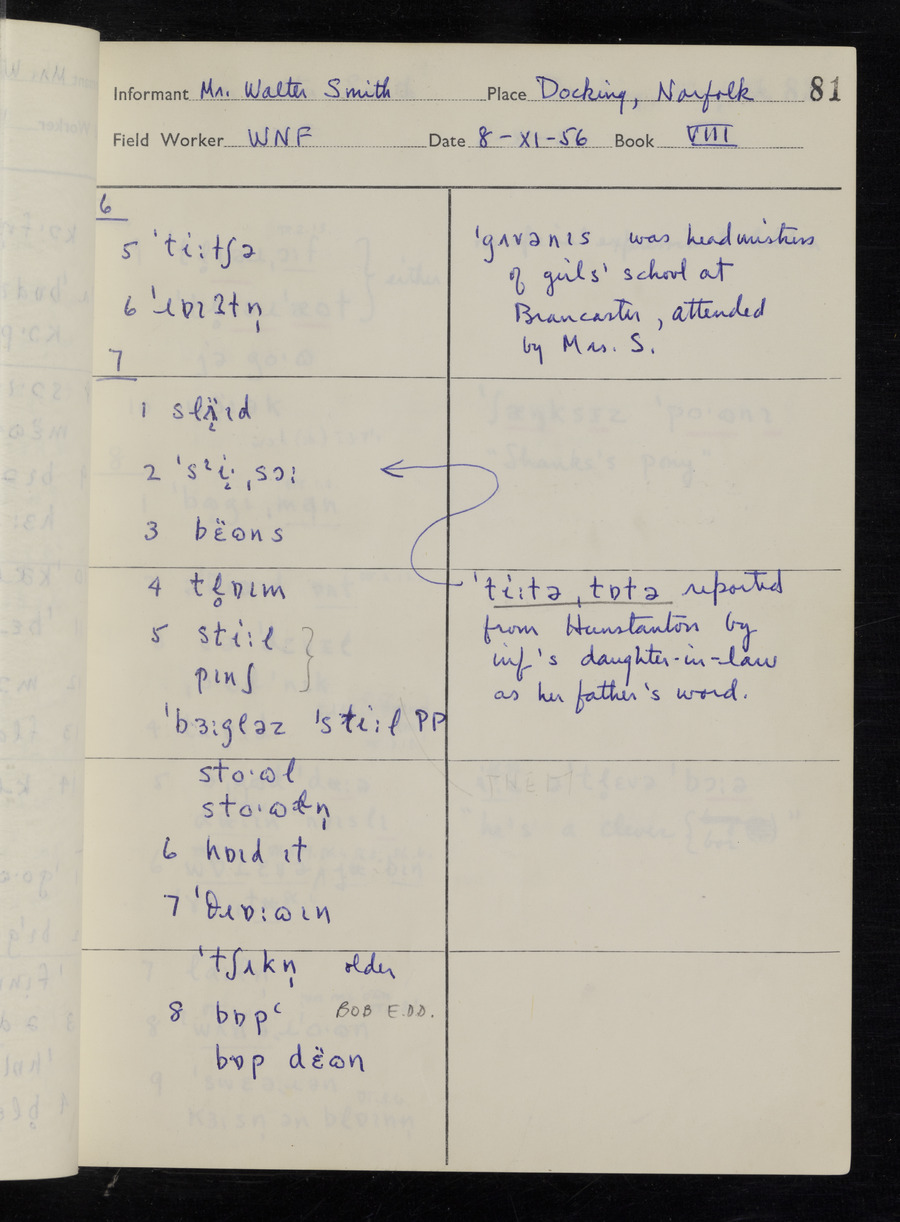 Informant Mr. Walter Smith Place Docking, Norfolk 81
Field Worker WNF Date 8-XI-56 Book VIII
6
5 ˈti̞ːtʃə
6 ˈɹɒɪʒtn̩
7
1 slʌ̈ɪd
2 ˈsᶦi̞ˌsɔː
3 bɛ̈ɷns
4 tl̥ɒɪm
5 sti̞ːl }
pɪnʃ
ˈbɜːgləz ˈsti̞ːl PP
stoˑɷl
stoˑɷln̩
6 hɒɪd ɪt
7 ˈθɹɒːɷɪn
ˈtʃʌkn̩ older
8 bɒpᶜ BOB E.D.D.
bɒp dɛ̈ɷn
ˈgʌvənɪs was headmistress
of girls' school at
Brancaster, attended
by Mrs. S.
ˈti̞ːtəˌtɒtə reported
from Hunstanton by
inf's daughter-in-law
as her father's word.